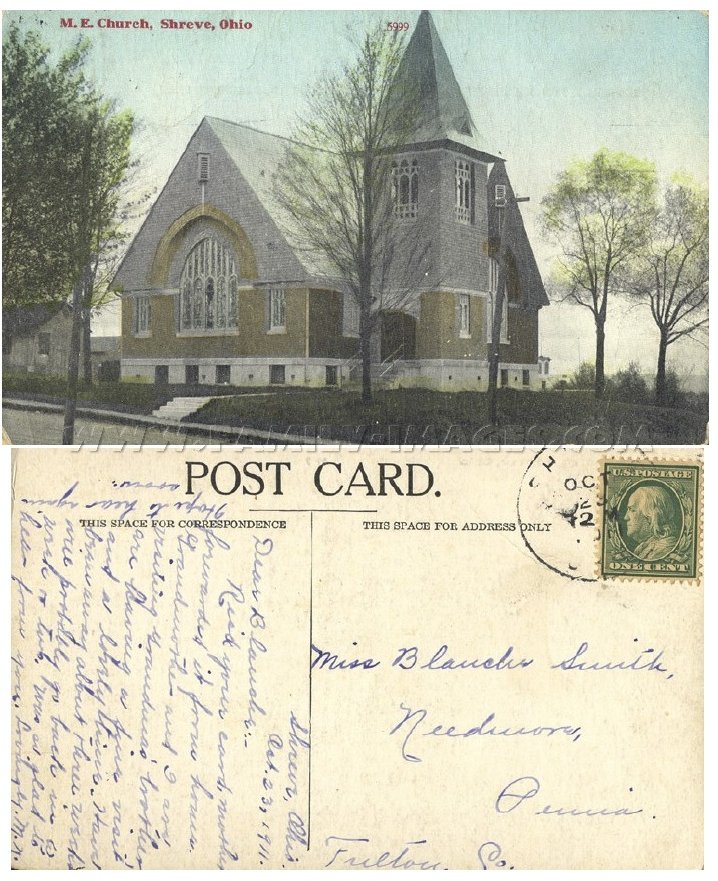 M. E. Church, Shreve, Ohio
5999
WWW.FAMILY-IMAGES.COM
POST CARD.
THIS SPACE FOR CORRESPONDENCE
THIS SPACE FOR ADDRESS ONLY
OCT
U.S. POSTAGE
ONE CENT
Miss Blanche Smith,
Needmore,
Penna.
Fulton, Co.
Shreve, Ohio.
Oct. 23, 1911.
Dear Blanche:-
Rec'd your card, mother
forwarded it from home.
Grandmother and I are
visiting grandma's brother
are having a fine visit
and a lovely time. Have
been away about three weeks
one probably go back in a
week or two. Was so glad to
hear from you.
Hope to hear again
soon.